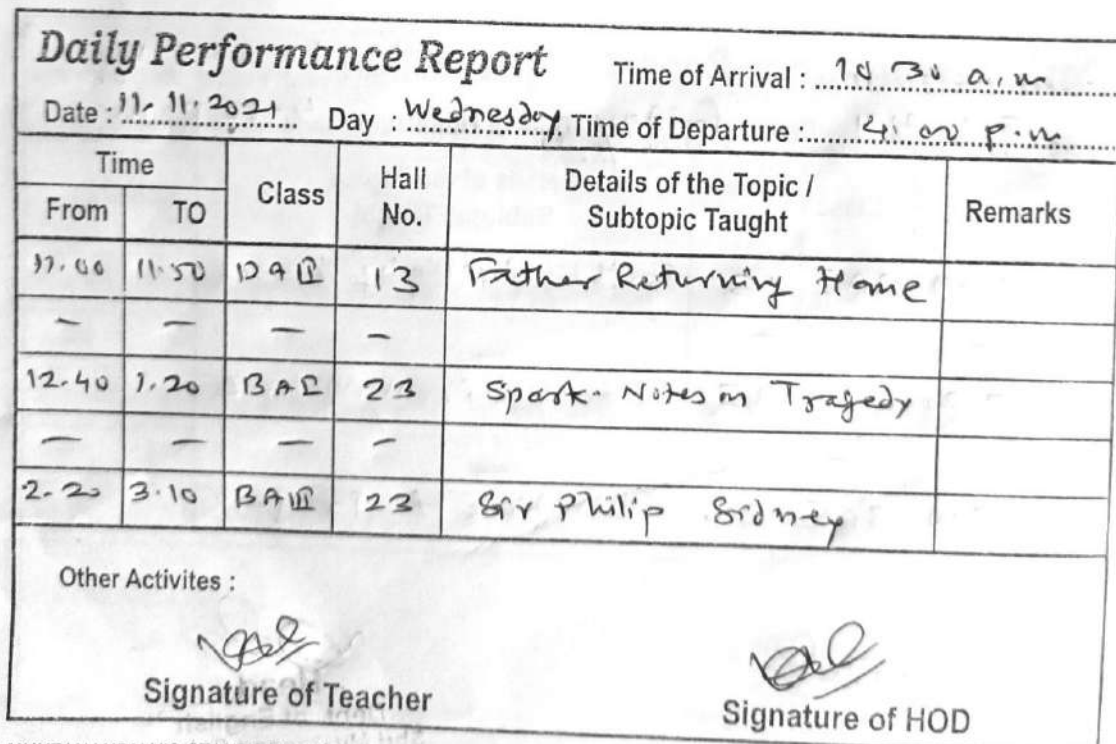 Daily Performance Report
Time of Arrival : 10 30 a.m
Date : 11.11.2021 Day : Wednesday Time of Departure : 4.00 p.m
Time Class Hall No. Details of the Topic / Subtopic Taught Remarks
From TO
11.00 11.50 BA II 13 Father Returning Home
— — — —
12.40 1.20 23 Spark-Notes on Tragedy
— — — —
2.20 3.10 BA III 23 Sir Philip Sidney
Other Activites :
Signature of Teacher
Signature of HOD